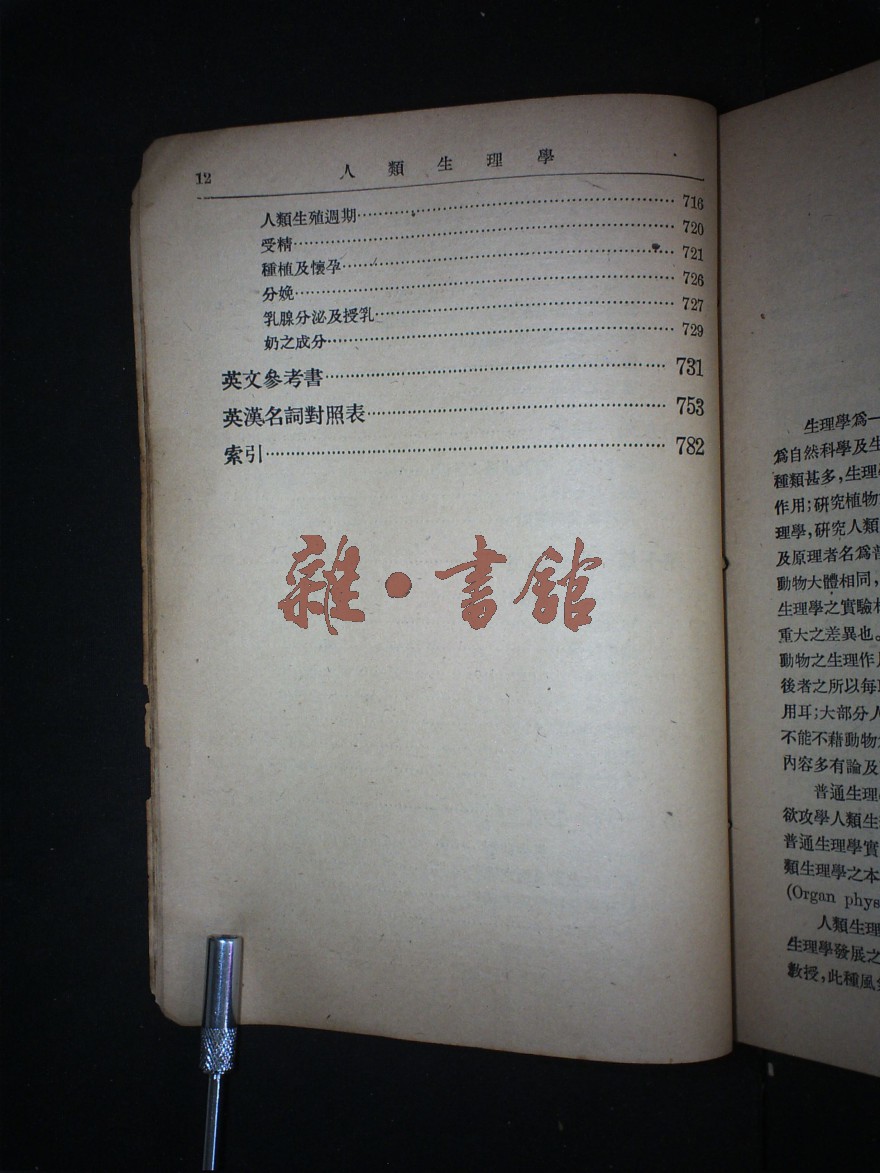 12 人類生理學
人類生殖週期 716
受精 720
種植及懷孕 721
分娩 726
乳腺分泌及授乳 727
奶之成分 729
英文參考書 731
英漢名詞對照表 753
索引 782
雜·書館
生理學爲一
爲自然科學及生
種類甚多,生理
作用;研究植物
理學,研究人類
及原理者名爲普
動物大體相同,
生理學之實驗
重大之差異也。
動物之生理作
後者之所以每
用耳;大部分人
不能不藉動物
內容多有論及
普通生理
欲攻學人類生
普通生理學實
類生理學之本
(Organ phys
人類生理
生理學發展之
教授,此種風